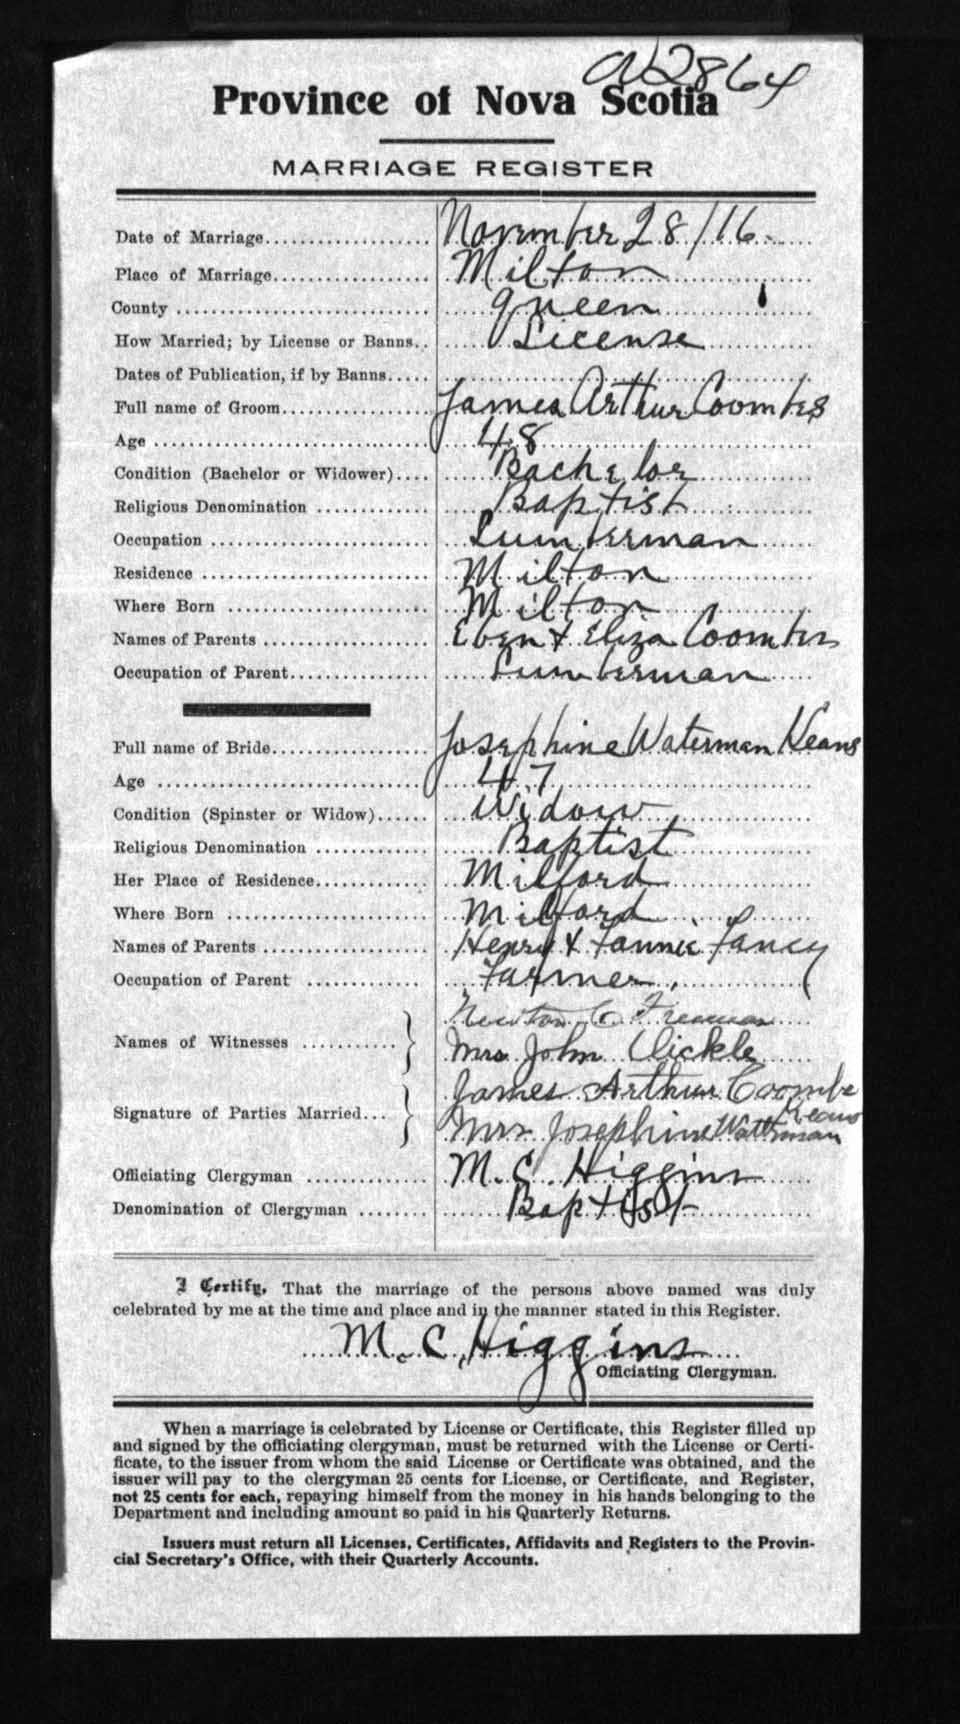 2864
Province of Nova Scotia
MARRIAGE REGISTER
Date of Marriage November 28/16
Place of Marriage Milton
County Queen
How Married; by License or Banns License
Dates of Publication, if by Banns
Full name of Groom James Arthur Coombes
Age 48
Condition (Bachelor or Widower) Bachelor
Religious Denomination Baptist
Occupation Lumberman
Residence Milton
Where Born Milton
Names of Parents Eben & Eliza Coombes
Occupation of Parent Lumberman
Full name of Bride Josephine Waterman Keans
Age 47
Condition (Spinster or Widow) Widow
Religious Denomination Baptist
Her Place of Residence Milford
Where Born Milford
Names of Parents Henry & Fannie Fancy
Occupation of Parent Farmer
Newton C Freeman
Names of Witnesses
Mrs John Nickle
James Arthur Coombs
Signature of Parties Married
Mrs Josephine Waterman Keans
Officiating Clergyman M. C. Higgins
Denomination of Clergyman Baptist
I Certify, That the marriage of the persons above named was duly
celebrated by me at the time and place and in the manner stated in this Register.
M. C. Higgins
Officiating Clergyman.
When a marriage is celebrated by License or Certificate, this Register filled up
and signed by the officiating clergyman, must be returned with the License or Certi-
ficate, to the issuer from whom the said License or Certificate was obtained, and the
issuer will pay to the clergyman 25 cents for License, or Certificate, and Register,
not 25 cents for each, repaying himself from the money in his hands belonging to the
Department and including amount so paid in his Quarterly Returns.
Issuers must return all Licenses, Certificates, Affidavits and Registers to the Provin-
cial Secretary's Office, with their Quarterly Accounts.